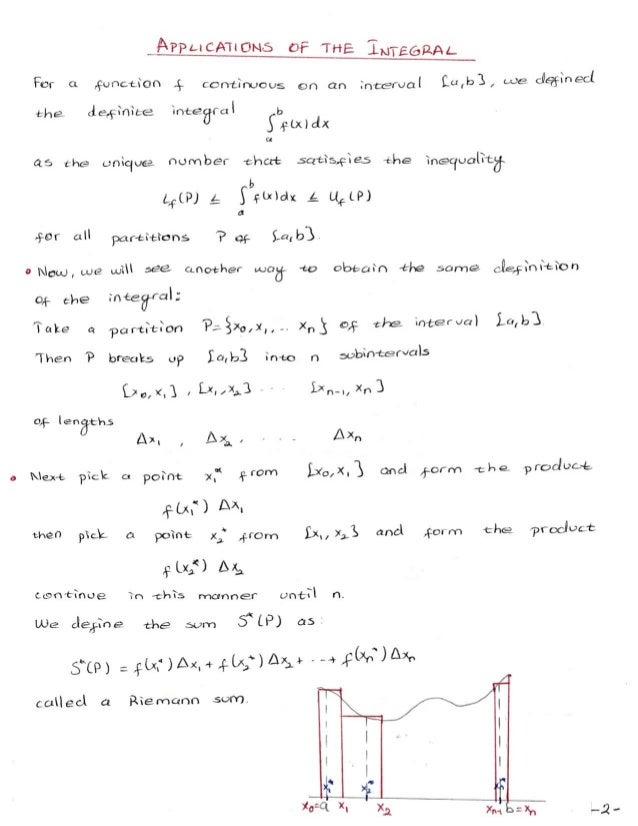 APPLICATIONS OF THE INTEGRAL
For a function f continuous on an interval [a,b], we defined
the definite integral ∫ₐᵇ f(x)dx
as the unique number that satisfies the inequality
Lf(P) ≤ ∫ₐᵇ f(x)dx ≤ Uf(P)
for all partitions P of [a,b].
• Now, we will see another way to obtain the same definition
of the integral:
Take a partition P={x₀,x₁,... xₙ} of the interval [a,b]
Then P breaks up [a,b] into n subintervals
[x₀,x₁], [x₁,x₂] ... [xₙ₋₁, xₙ]
of lengths
Δx₁ , Δx₂ , .... Δxₙ
• Next pick a point x₁* from [x₀,x₁] and form the product
f(x₁*) Δx₁
then pick a point x₂* from [x₁,x₂] and form the product
f(x₂*) Δx₂
continue in this manner until n.
We define the sum S*(P) as:
S*(P) = f(x₁*)Δx₁ + f(x₂*)Δx₂ + ... + f(xₙ*)Δxₙ
called a Riemann sum.
x₁* x₂* xₙ*
x₀=a x₁ x₂ xₙ₋₁ b=xₙ
-2-